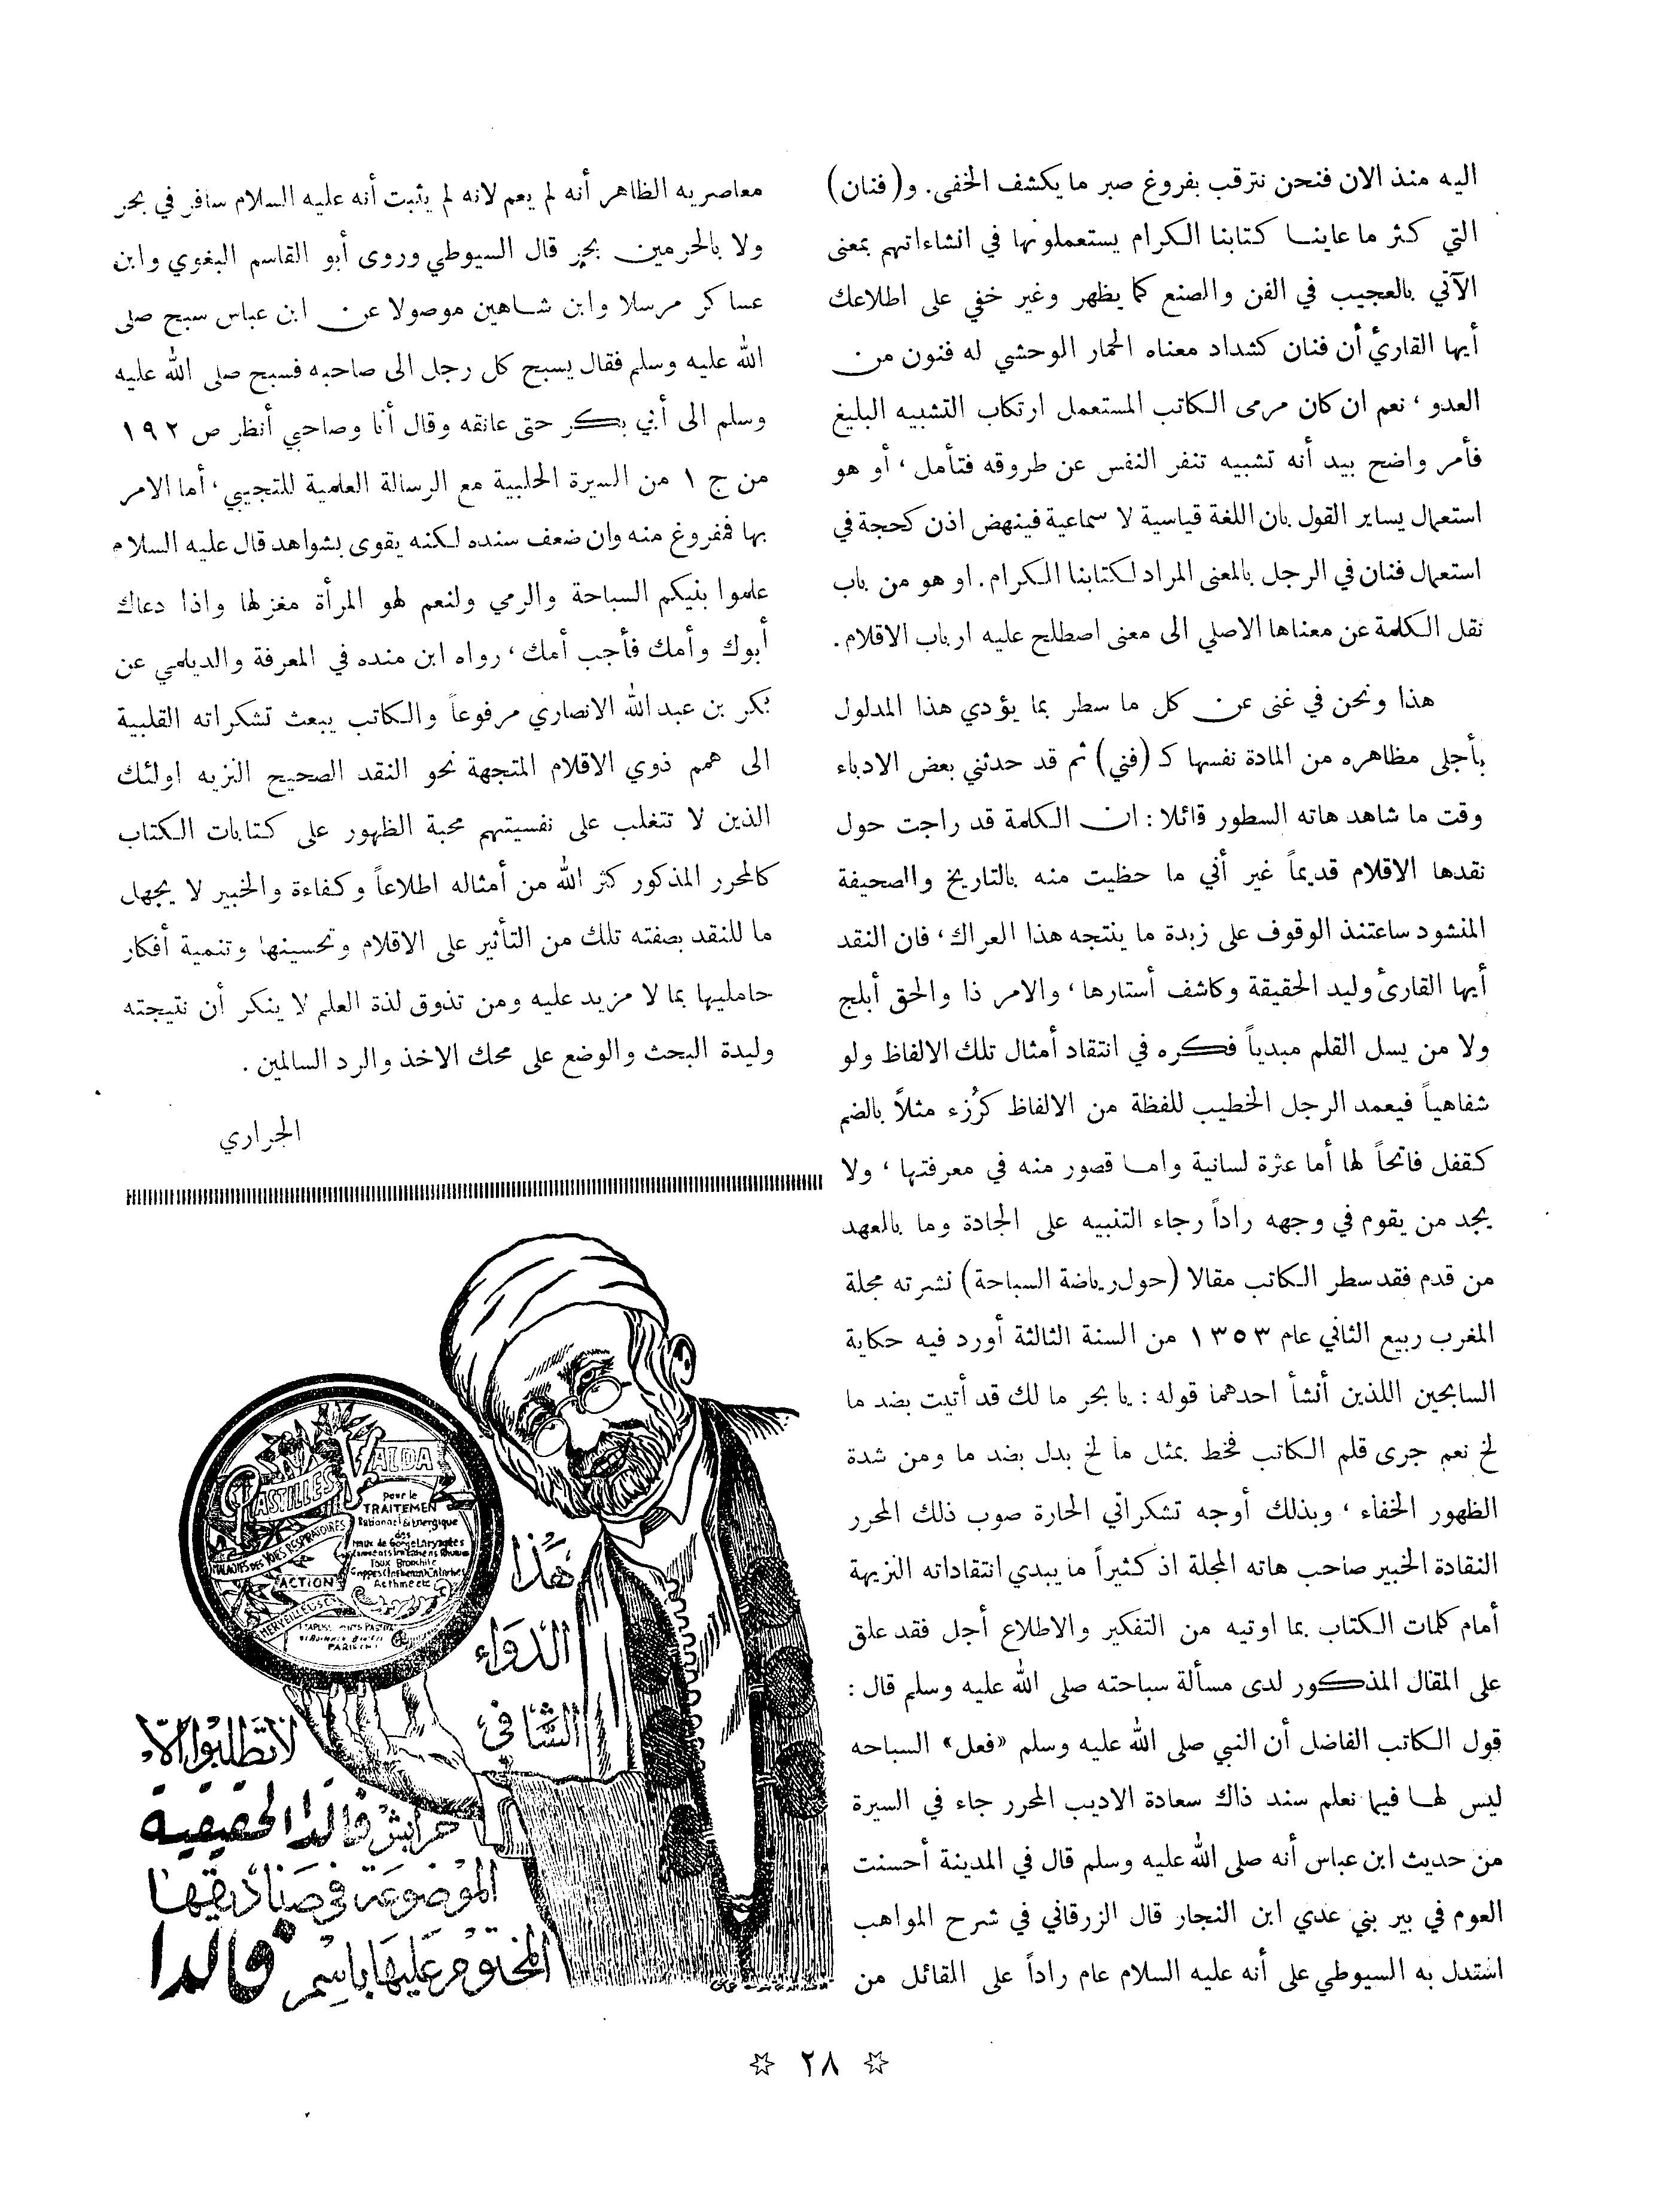 اليه منذ الان فنحن نترقب بفروغ صبر ما يكشف الخفى. و(فنان)
التي كثر ما عاينا كتابنا الكرام يستعملونها في انشاءاتهم بمعنى
الآتي بالعجيب في الفن والصنع كما يظهر وغير خفي على اطلاعك
أيها القارئ أن فنان كشداد معناه الحمار الوحشي له فنون من
العدو ، نعم ان كان مرمى الكاتب المستعمل ارتكاب التشبيه البليغ
فأمر واضح بيد أنه تشبيه تنفر النفس عن طروقه فتأمل ، أو هو
استعمال يساير القول بان اللغة قياسية لا سماعية فينهض اذن كحجة في
استعمال فنان في الرجل بالمعنى المراد لكتابنا الكرام. او هو من باب
نقل الكلمة عن معناها الاصلي الى معنى اصطلح عليه ارباب الاقلام.
هذا ونحن في غنى عن كل ما سطر بما يؤدي هذا المدلول
بأجلى مظاهره من المادة نفسها كـ (فني) ثم قد حدثني بعض الادباء
وقت ما شاهد هاته السطور قائلا : ان الكلمة قد راجت حول
نقدها الاقلام قديماً غير أني ما حظيت منه بالتاريخ والصحيفة
المنشود ساعتئذ الوقوف على زبدة ما ينتجه هذا العراك ، فان النقد
أيها القارئ وليد الحقيقة وكاشف أستارها ، والامر ذا والحق أبلج
ولا من يسل القلم مبدياً فكره في انتقاد أمثال تلك الالفاظ ولو
شفاهياً فيعمد الرجل الخطيب للفظة من الالفاظ كرُزء مثلاً بالضم
كقفل فاتحاً لها أما عثرة لسانية واما قصور منه في معرفتها ، ولا
يجد من يقوم في وجهه راداً رجاء التنبيه على الجادة وما بالعهد
من قدم فقد سطر الكاتب مقالا (حول رياضة السباحة) نشرته مجلة
المغرب ربيع الثاني عام ١٣٥٣ من السنة الثالثة أورد فيه حكاية
السابحين اللذين أنشأ احدهما قوله : يا بحر ما لك قد أتيت بضد ما
لخ نعم جرى قلم الكاتب فخط بمثل ما لخ بدل بضد ما ومن شدة
الظهور الخفاء ، وبذلك أوجه تشكراتي الحارة صوب ذلك المحرر
النقادة الخبير صاحب هاته المجلة اذ كثيراً ما يبدي انتقاداته النزيهة
أمام كلمات الكتاب بما اوتيه من التفكير والاطلاع أجل فقد علق
على المقال المذكور لدى مسألة سباحته صلى الله عليه وسلم قال :
قول الكاتب الفاضل أن النبي صلى الله عليه وسلم «فعل» السباحه
ليس لها فيما نعلم سند ذاك سعادة الاديب المحرر جاء في السيرة
من حديث ابن عباس أنه صلى الله عليه وسلم قال في المدينة أحسنت
العوم في بير بني عدي ابن النجار قال الزرقاني في شرح المواهب
استدل به السيوطي على أنه عليه السلام عام راداً على القائل من
معاصريه الظاهر أنه لم يعم لانه لم يثبت أنه عليه السلام سافر في بحر
ولا بالحرمين بحر قال السيوطي وروى أبو القاسم البغوي وابن
عساكر مرسلا وابن شاهين موصولا عن ابن عباس سبح صلى
الله عليه وسلم فقال يسبح كل رجل الى صاحبه فسبح صلى الله عليه
وسلم الى أبي بكر حتى عانقه وقال أنا وصاحبي أنظر ص ١٩٢
من ج ١ من السيرة الحلبية مع الرسالة العلمية للتجيبي ، أما الامر
بها فمفروغ منه وان ضعف سنده لكنه يقوى بشواهد قال عليه السلام
علموا بنيكم السباحة والرمي ولنعم لهو المرأة مغزلها واذا دعاك
أبوك وأمك فأجب أمك ، رواه ابن منده في المعرفة والديلمي عن
بكر بن عبد الله الانصاري مرفوعاً والكاتب يبعث تشكراته القلبية
الى همم ذوي الاقلام المتجهة نحو النقد الصحيح النزيه اولئك
الذين لا تتغلب على نفسيتهم محبة الظهور على كتابات الكتاب
كالمحرر المذكور كثر الله من أمثاله اطلاعاً وكفاءة والخبير لا يجهل
ما للنقد بصفته تلك من التأثير على الاقلام وتحسينها وتنمية أفكار
حامليها بما لا مزيد عليه ومن تذوق لذة العلم لا ينكر أن نتيجته
وليدة البحث والوضع على محك الاخذ والرد السالمين .
الجراري
PASTILLES VALDA
pour le
TRAITEMEN
Rationnel & Energique
des
Maux de Gorge Laryngites
Toux Bronchite
Asthme etc
MALADIES DES VOIES RESPIRATOIRES
ACTION
MERVEILLEUSE
هَذَا
الدَوَاء
الشَّافي
لا تَطلبُوا الّا
حرابش ڤالدا الحقيقية
المَوضوعَة في صَنَاديقهَا
المختوم عَليهَا بإسِمْ ڤالدا
٢٨